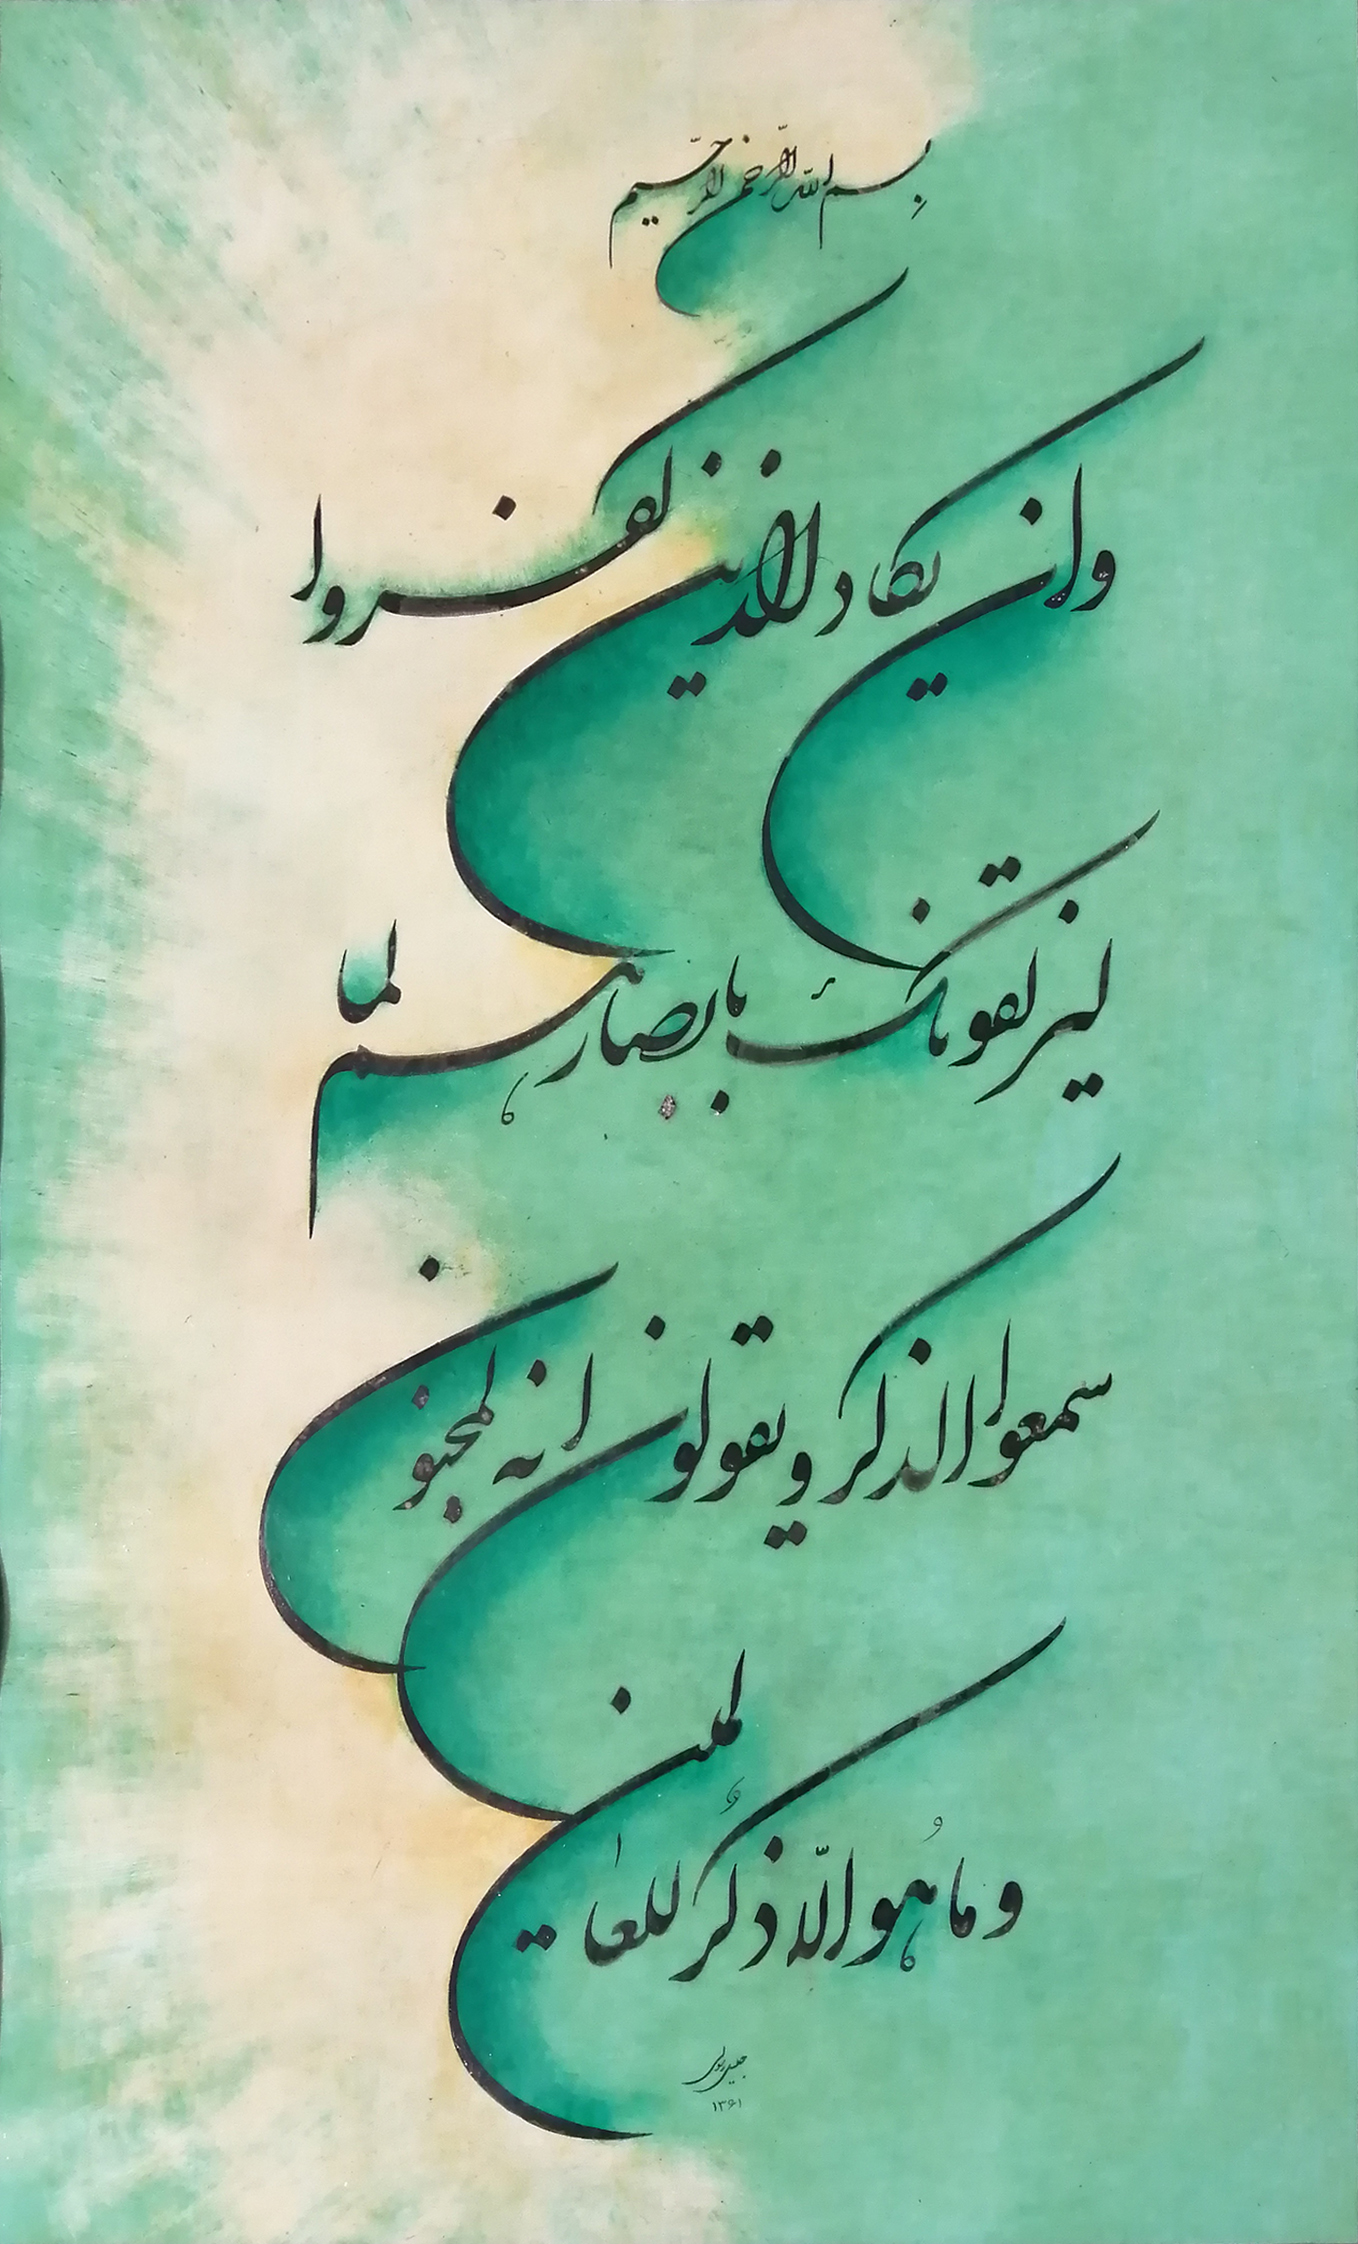 بسم الله الرحمن الرحیم
وان یکاد الذین کفروا
لیزلقونک بابصارهم لما
سمعوا الذکر و یقولون انه لمجنون
و ما هُو الّا ذکرٌ للعٰلمین
جلیل رسولی
۱۳۶۱